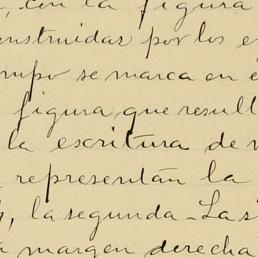 , con la figura
onstruidas por los e
mpo se marca en e
figura, que result
la escritura de v
representán la
, la segunda - La s
margen derecha